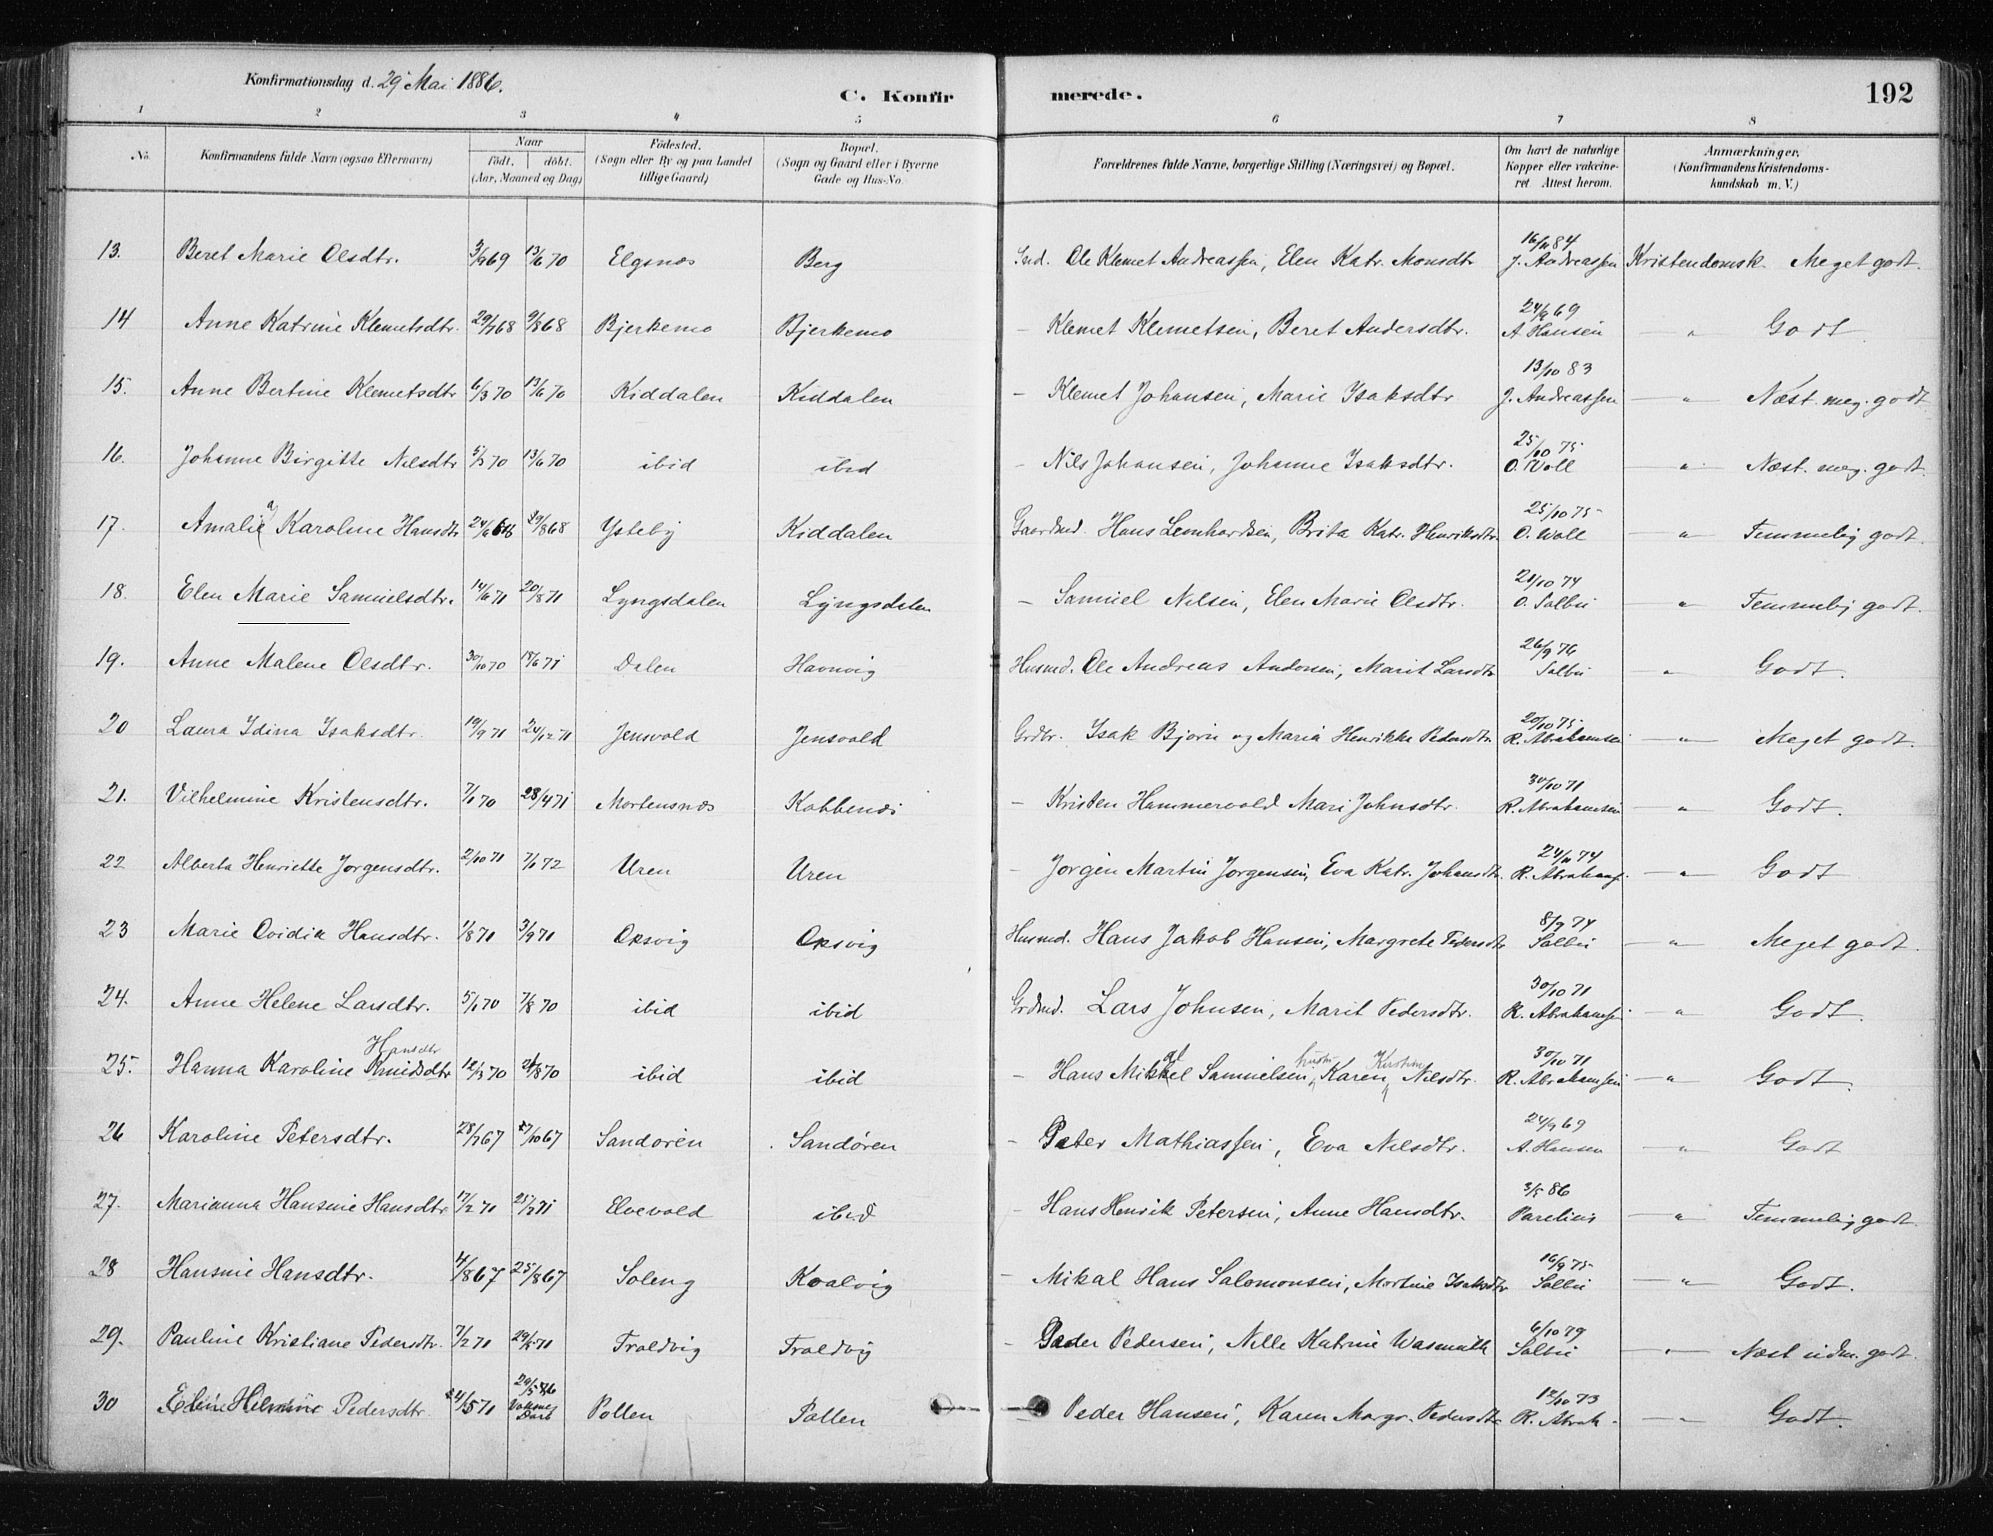 Konfirmationsdag d. 29 Mai 1886.
C. Konfirmerede.
192
1 2 3 4 5 6 7 8
No. Konfirmandens fulde Navn (ogsaa Efternavn) Naar födt. döbt. (Aar, Maaned og Dag) Födested. (Sogn eller By og paa Landet tillige Gaard) Bopæl. (Sogn og Gaard eller i Byerne Gade og Hus-No. Forældrenes fulde Navne, borgerlige Stilling (Næringsvei) og Bopæl. Om havt de naturlige Kopper eller vakcineret Attest herom. Anmærkninger. (Konfirmandens Kristendomskundskab m. V.)
13. Beret Marie Olsdtr. 3/9 69 13/6 70 Elgsnæs Berg Ole Klemet Andreassen, Elen Katr. Monsdtr 16/11 84 J. Andreassen Kristendomsk. Meget godt.
14 Anne Katrine Klemetsdtr. 29/7 68 9/8 68 Bjerkemo Bjerkemo - Klemet Klemetsen, Beret Andersdtr. 24/9 69 A. Hansen " Godt
15. Anne Bertine Klemetsdtr 6/3 70 13/6 70 Kiddalen Kiddalen - Klemet Johansen, Marie Isaksdtr 13/10 83 J. Andreassen — " Næst. meg. godt
16. Johanne Birgitte Nilsdtr 5/3 70 13/6 70 ibid ibid - Nils Johansen, Johanne Isaksdtr. 25/10 75 O. Woll " Næst. meg. godt.
17. Amalie Karoline Hansdtr 24/6 68 29/8 68 Ysteby Kiddalen Gaardmd. Hans Leonhardsen, Brita Katr. Henriksdtr. 25/10 75 O. Woll " Temmelig godt.
18. Elen Marie Samuelsdtr. 14/6 71 20/8 71 Lyngsdalen Lyngsdalen - Samuel Nilsen, Elen Marie Olsdtr. 21/10 74 O. Solbu " Temmelig godt.
19. Anne Malene Olsdtr. 30/10 70 18/6 71 Dalen Havnvig Husmd. Ole Andreas Andorsen, Marit Larsdtr 26/9 76 Solbu " Godt.
20 Laura Idina Isaksdtr. 19/9 71 24/12 71 Jensvold Jensvold Grdbr. Isak Bjorn og Maria Henrikke Pedersdtr. 20/10 75 R. Abrahamsen — " Meget godt.
21. Vilhelmine Kristensdtr. 7/1 70 28/4 71 Mortensnæs Kobbenæs - Kristen Hammervold Mari Johnsdtr. 30/10 71 R. Abrahamsen — " Godt.
22 Alberta Henriette Jorgensdtr. 2/10 71 7/1 72 Uren Uren - Jorgen Martin Jorgensen, Eva Katr. Johansdtr. 24/11 74 R. Abrahams. — " Godt
23 Marie Ovidia Hansdtr. 1/8 71 3/9 71 Oksvig Oksvig Husmd. Hans Jakob Hansen, Margrete Pedersdtr 8/9 74 Solbu — " Meget godt.
24. Anne Helene Larsdtr. 5/1 70 7/8 70 ibid ibid Grdmd. Lars Johnsen, Marit Pedersdtr. 30/10 71 R. Abrahamsen — " Godt.
Hansdtr hustr. Kirstine
25. Hanna Karoline Knudsdtr 12/3 70 21/8 70 ibid ibid - Hans Mikkel Samuelsen, Karen Nilsdtr. 30/10 71 R. Abrahamsen — " Godt.
26 Karoline Petersdtr. 28/7 67 27/10 67 Sandoren Sandören - Peter Mathiassen, Eva Nilsdtr. 24/9 69 A. Hansen — " Godt
27. Marianna Hansine Hansdtr 17/2 70 25/7 71 Elvevold ibid - Hans Henrik Petersen, Anne Hansdtr. 3/5 86 Parelius — " Temmelig godt.
28 Hansine Hansdtr. 4/8 67 25/8 67 Soleng Kvalvig - Mikal Hans Salomonsen, Mortine Isaksdtr 16/9 75 Solbu — " Godt.
29. Pauline Kristiane Pedersdtr. 7/2 71 29/5 71 Troldvig Troldvig - Peder Pedersen, Nille Katrine Wasmuth 6/10 79 Solbu — " Næst udm. godt.
30 Pedersdtr. 24/5 71 29/5 86 Voksnes Daab Pollen Pollen - Peder Hansen, Karen Margr. Pedersdtr 12/10 73 R. Abrah. — " Godt.